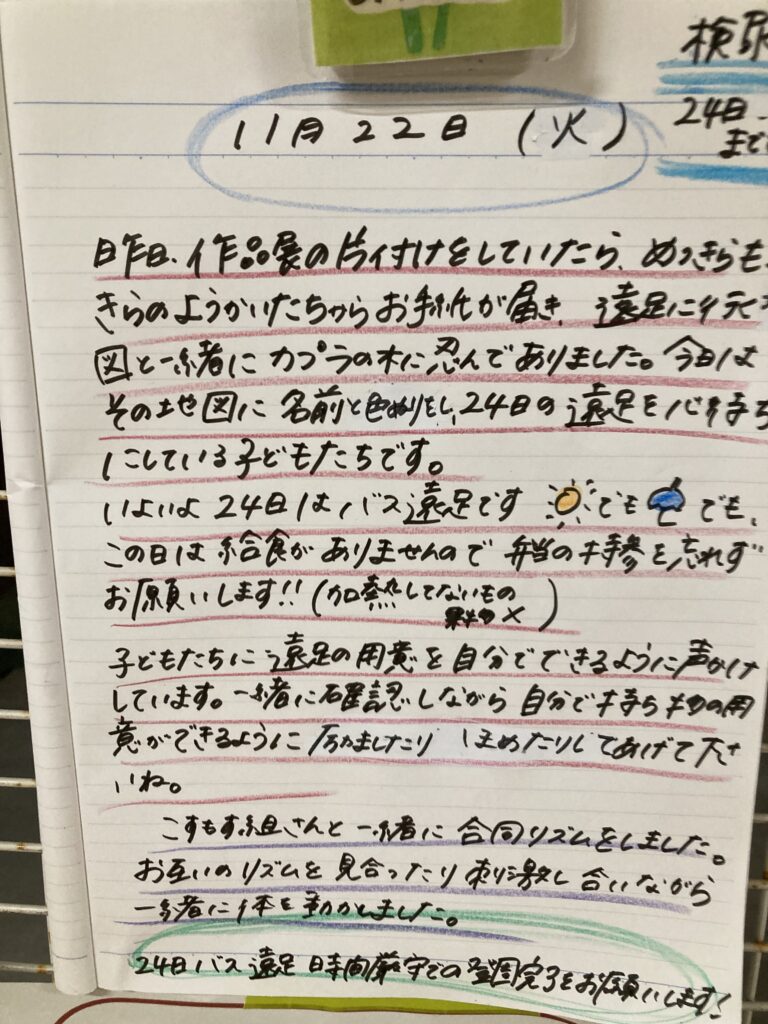 検尿
24日
まで
11月22日(火)
昨日、作品展の片付けをしていたら、めっきらも
きらのようかいたちからお手紙が届き、遠足に行く
図と一緒にカプラの木に忍んでありました。今日は
その地図に名前と色ぬりをし、24日の遠足を心待ち
にしている子どもたちです。
いよいよ24日はバス遠足です でも でも、
この日は給食がありませんので弁当の持参を忘れず
お願いします!!(加熱してないもの
果物×)
子どもたちに遠足の用意を自分でできるように声かけ
しています。一緒に確認しながら自分で持ち物の用
意ができるように励ましたり ほめたりしてあげて下さ
いね。
こすもす組さんと一緒に合同リズムをしました。
お互いのリズムを見合ったり刺激し合いながら
一緒に体を動かしました。
24日バス遠足 時間厳守での登園完了をお願いします!